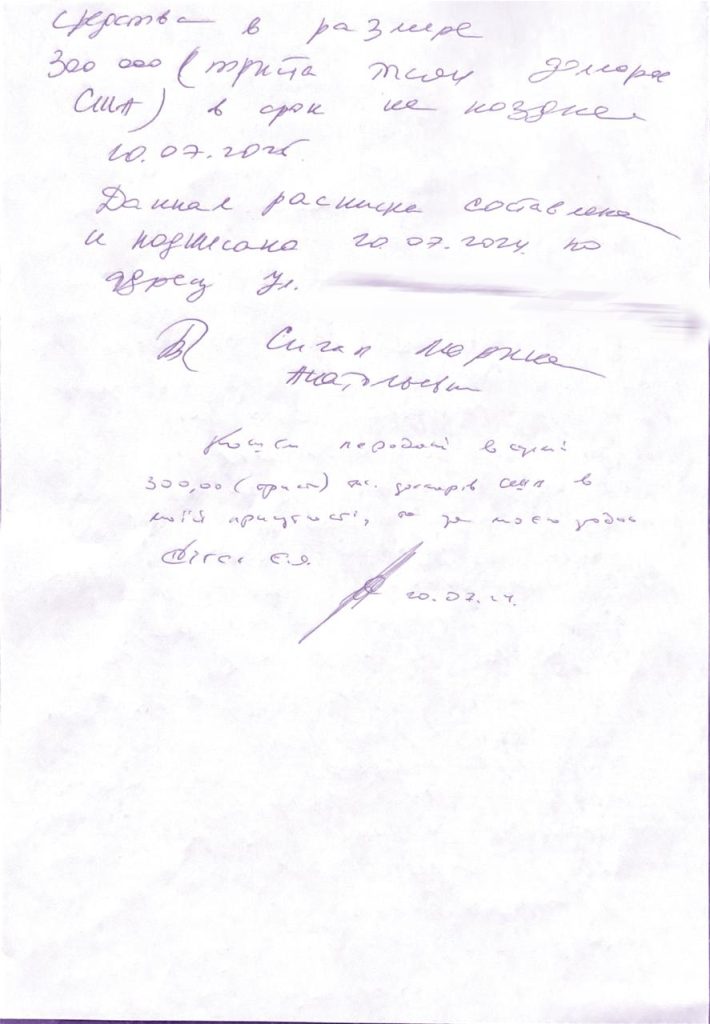 средства в размере
300 000 (триста тысяч долларов
США) в срок не позднее
20.07.2025
Данная расписка составлена
и подписана 20.07.2024 по
адресу ул.
Сигал Марина
Анатольевна
Кошти передані в сумі
300,00 (триста) тис. доларів США в
моїй присутності, та за моєю згодою
Сігал Є.Я.
20.07.24.